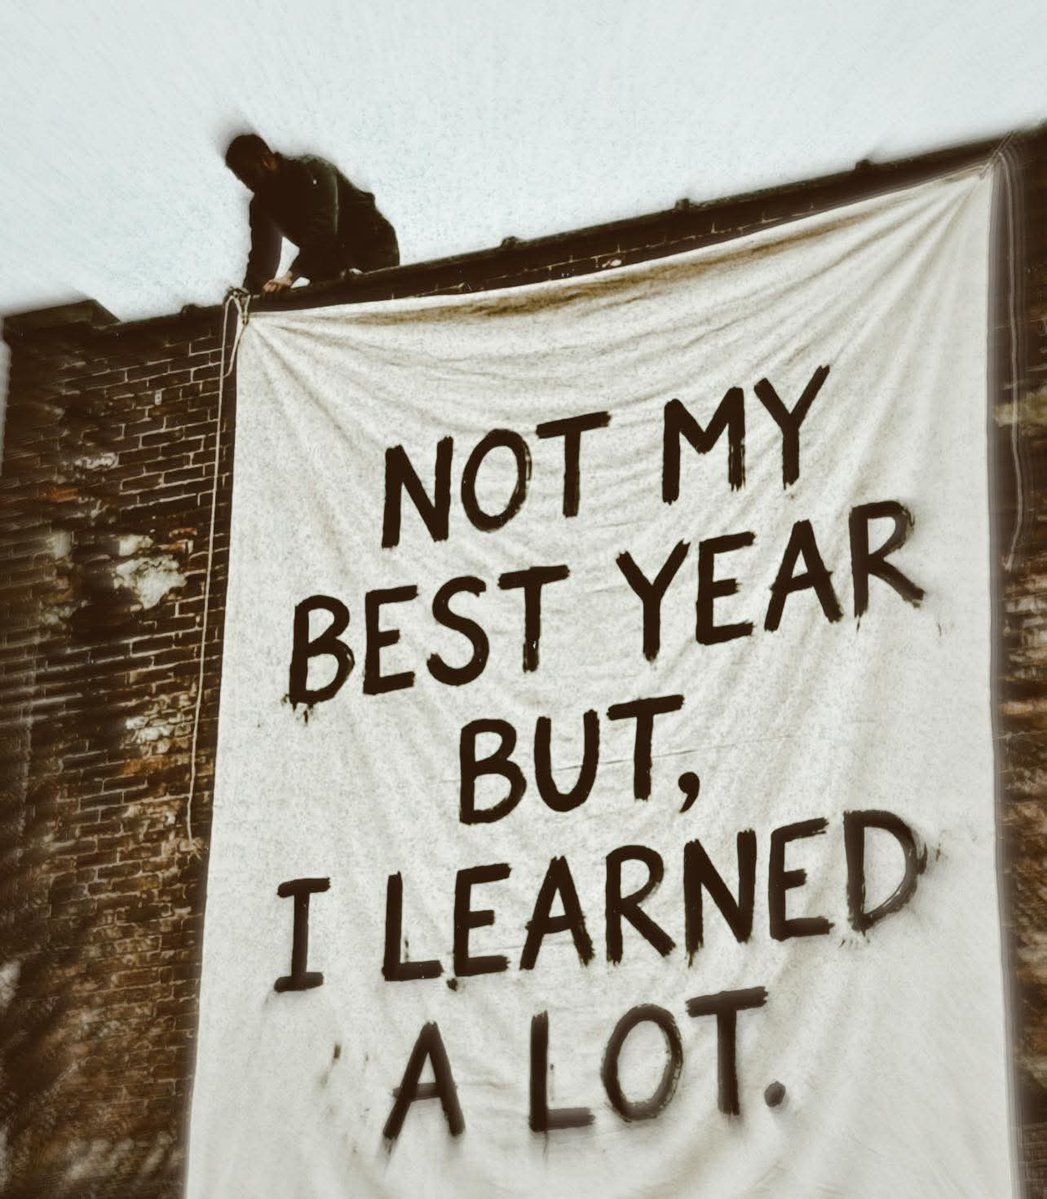 NOT MY
BEST YEAR
BUT,
I LEARNED
A LOT.